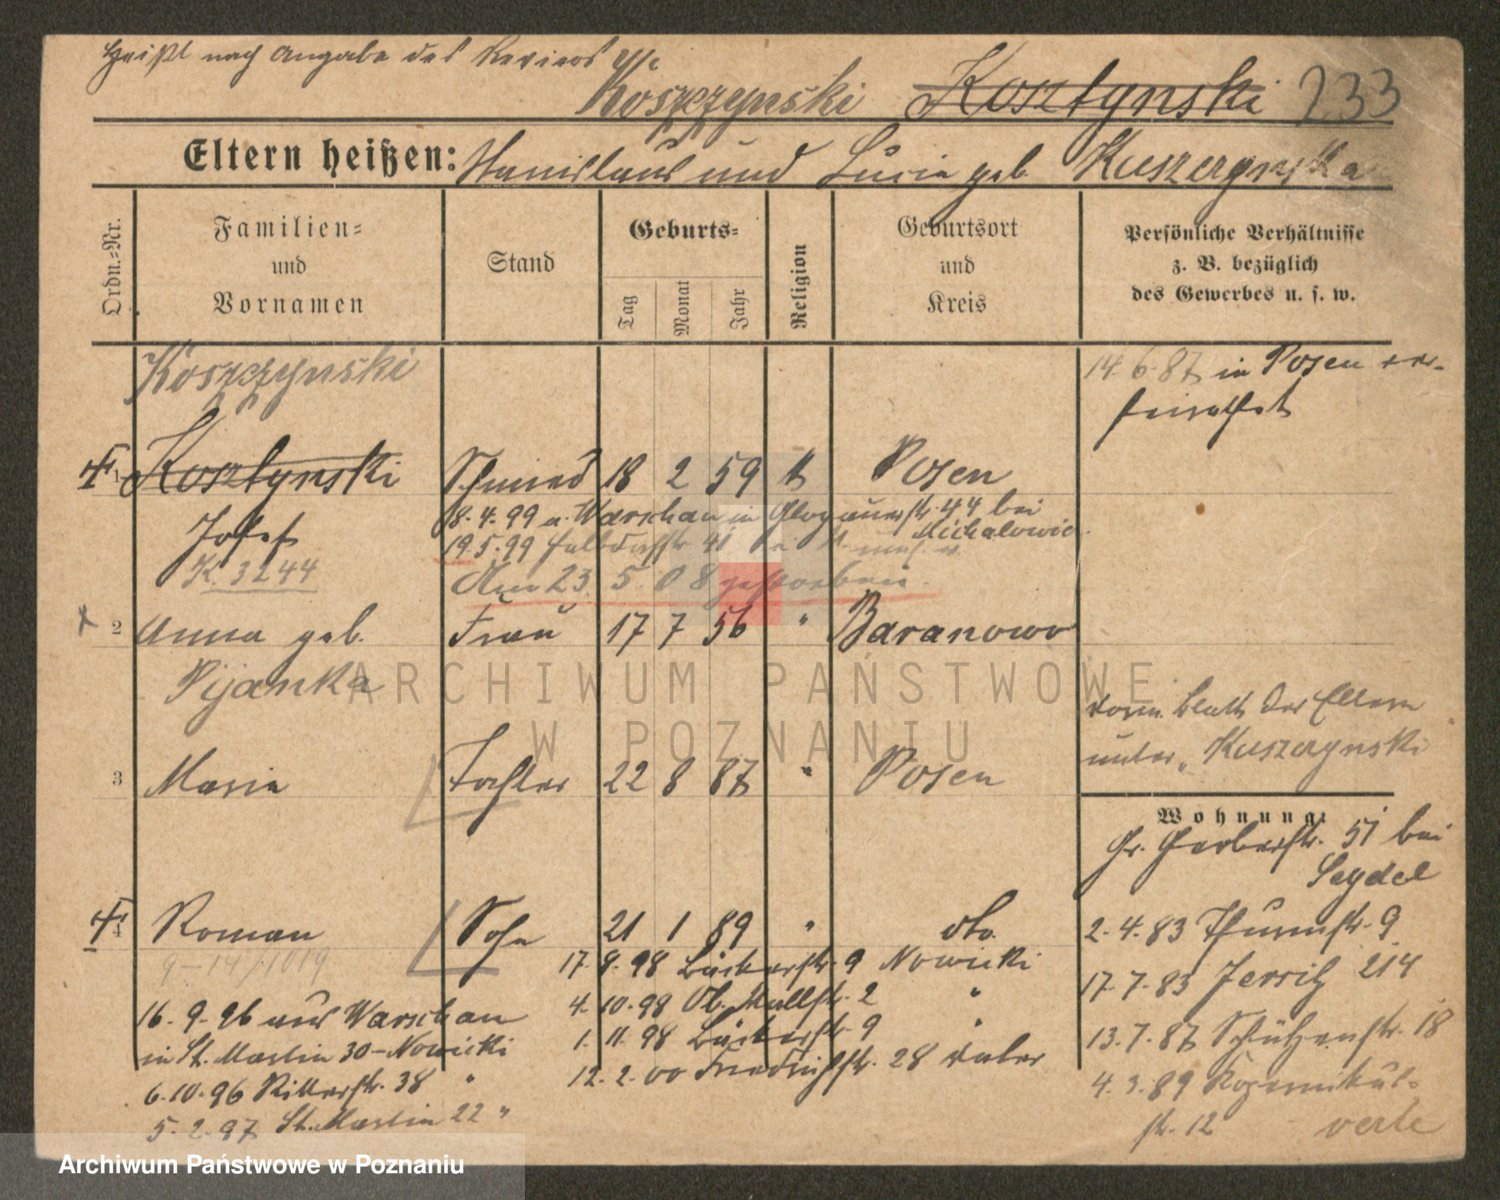 heißt nach Angabe des Reviers
Koszczynski Kosztynski 233
Eltern heißen: Stanislaus und Lucia geb. Kuszczynska
Ordn.-Nr.
Familien-
und
Vornamen
Stand
Geburts-
Tag
Monat
Jahr
Religion
Geburtsort
und
Kreis
Persönliche Verhältnisse
z. B. bezüglich
des Gewerbes u. s. w.
Koszczynski
14.6.87 in Posen ver-
heirathet
1 Kosztynski Schmied 18 2 59 k Posen
Josef
18.4.99 a. Warschau in Glogauerstr. 44 bei
Michalowicz
K. 3244
19.5.99
Am 23. 5. 08 gestorben.
2 Anna geb. Frau 17 7 56 " Baranowo
Pijanka
ARCHIWUM PAŃSTWOWE
W POZNANIU
vorm. Blatt der Eltern
unter "Kuszczynski
3 Maria Tochter 22 8 87 " Posen
Wohnung:
Gr. Gerberstr. 51 bei
Seydel
4 Roman Sohn 21 1 89 " dto.
2.4.83 Thurmstr. 9
17.8.98 Bäckerstr. 9 Nowicki
17.7.83 Jersitz 214
16.9.96 aus Warschau
4.10.98 Ob. Mühlstr. 2 "
in St. Martin 30 - Nowicki
1.11.98 Bäckerstr. 9 "
13.7.87 Schützenstr. 18
6.10.96 Ritterstr. 38 "
12.2.00 Friedrichstr. 28
4.3.89 Kopernikus-
str. 12
5.2.97 St. Martin 22 "
verte
Archiwum Państwowe w Poznaniu